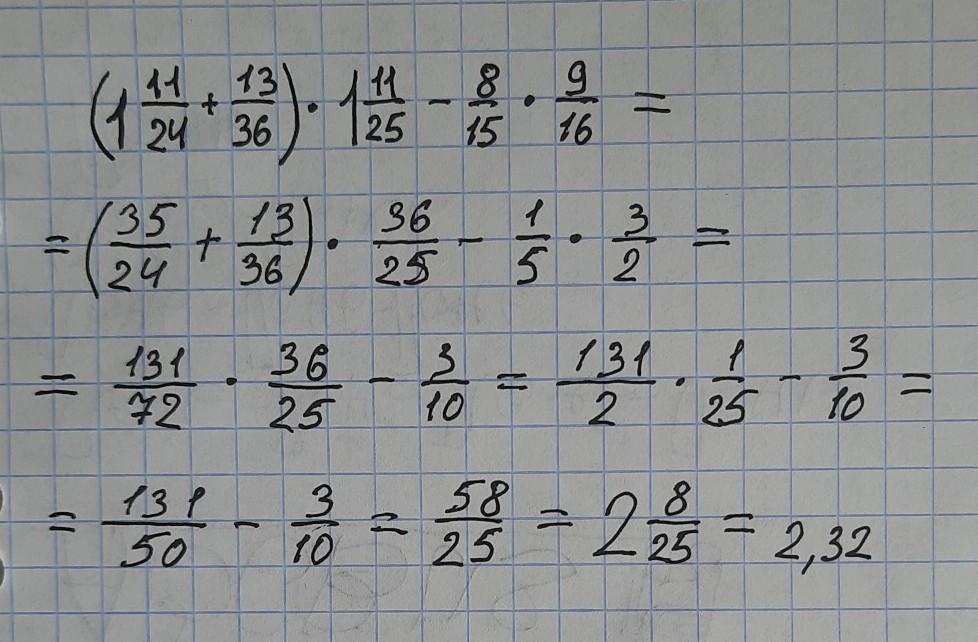 (1 11/24 + 13/36) · 1 11/25 - 8/15 · 9/16 =
= (35/24 + 13/36) · 36/25 - 1/5 · 3/2 =
= 131/72 · 36/25 - 3/10 = 131/2 · 1/25 - 3/10 =
= 131/50 - 3/10 = 58/25 = 2 8/25 = 2,32